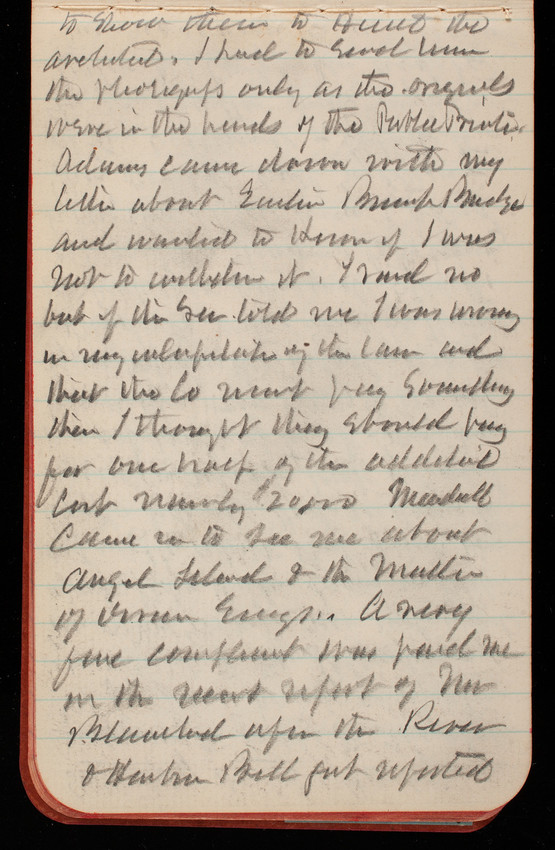 to show them to Hunt the
architect. I had to send him
the photographs only as the originals
were in the hands of the Public Printer.
Adams came down with my
letter about Bridge
and wanted to know if I was
not to withdraw it. I said no
but if the Gen told me I was wrong
in my interpretation of the law and
that the Co must pay something
then I thought they should pay
for one half of the additional
cost namely $2000 Mendell
came in to see me about
Angel Island & the matter
of Engrs.. A very
fine compliment was paid me
in the recent report of Mr
Blanchard upon the River
& Harbor Bill just reported